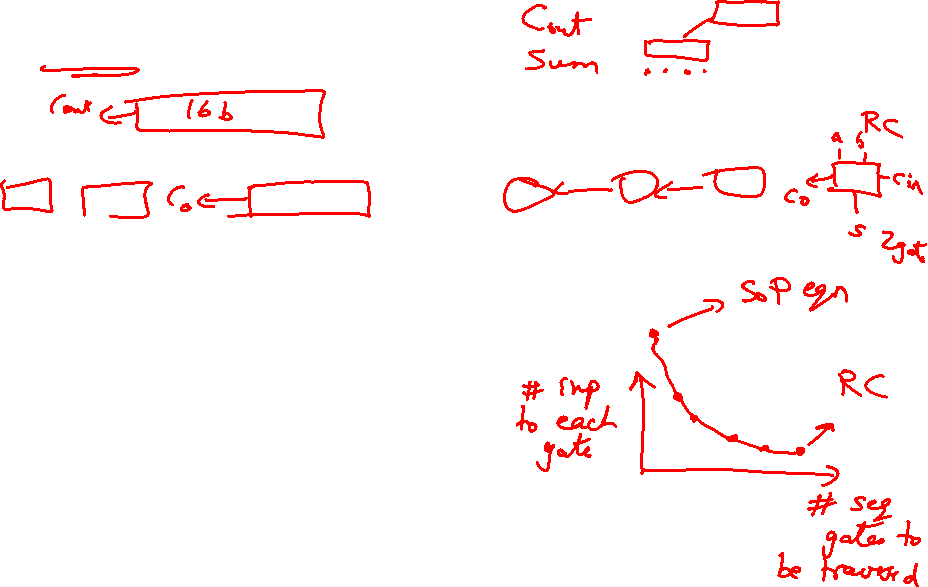 Cout
Sum
Cout
16b
RC
a b
Cin
Co
S
2gate
Co
SoP eqn
# inp
to each
gate
RC
# seq
gates to
be traversd